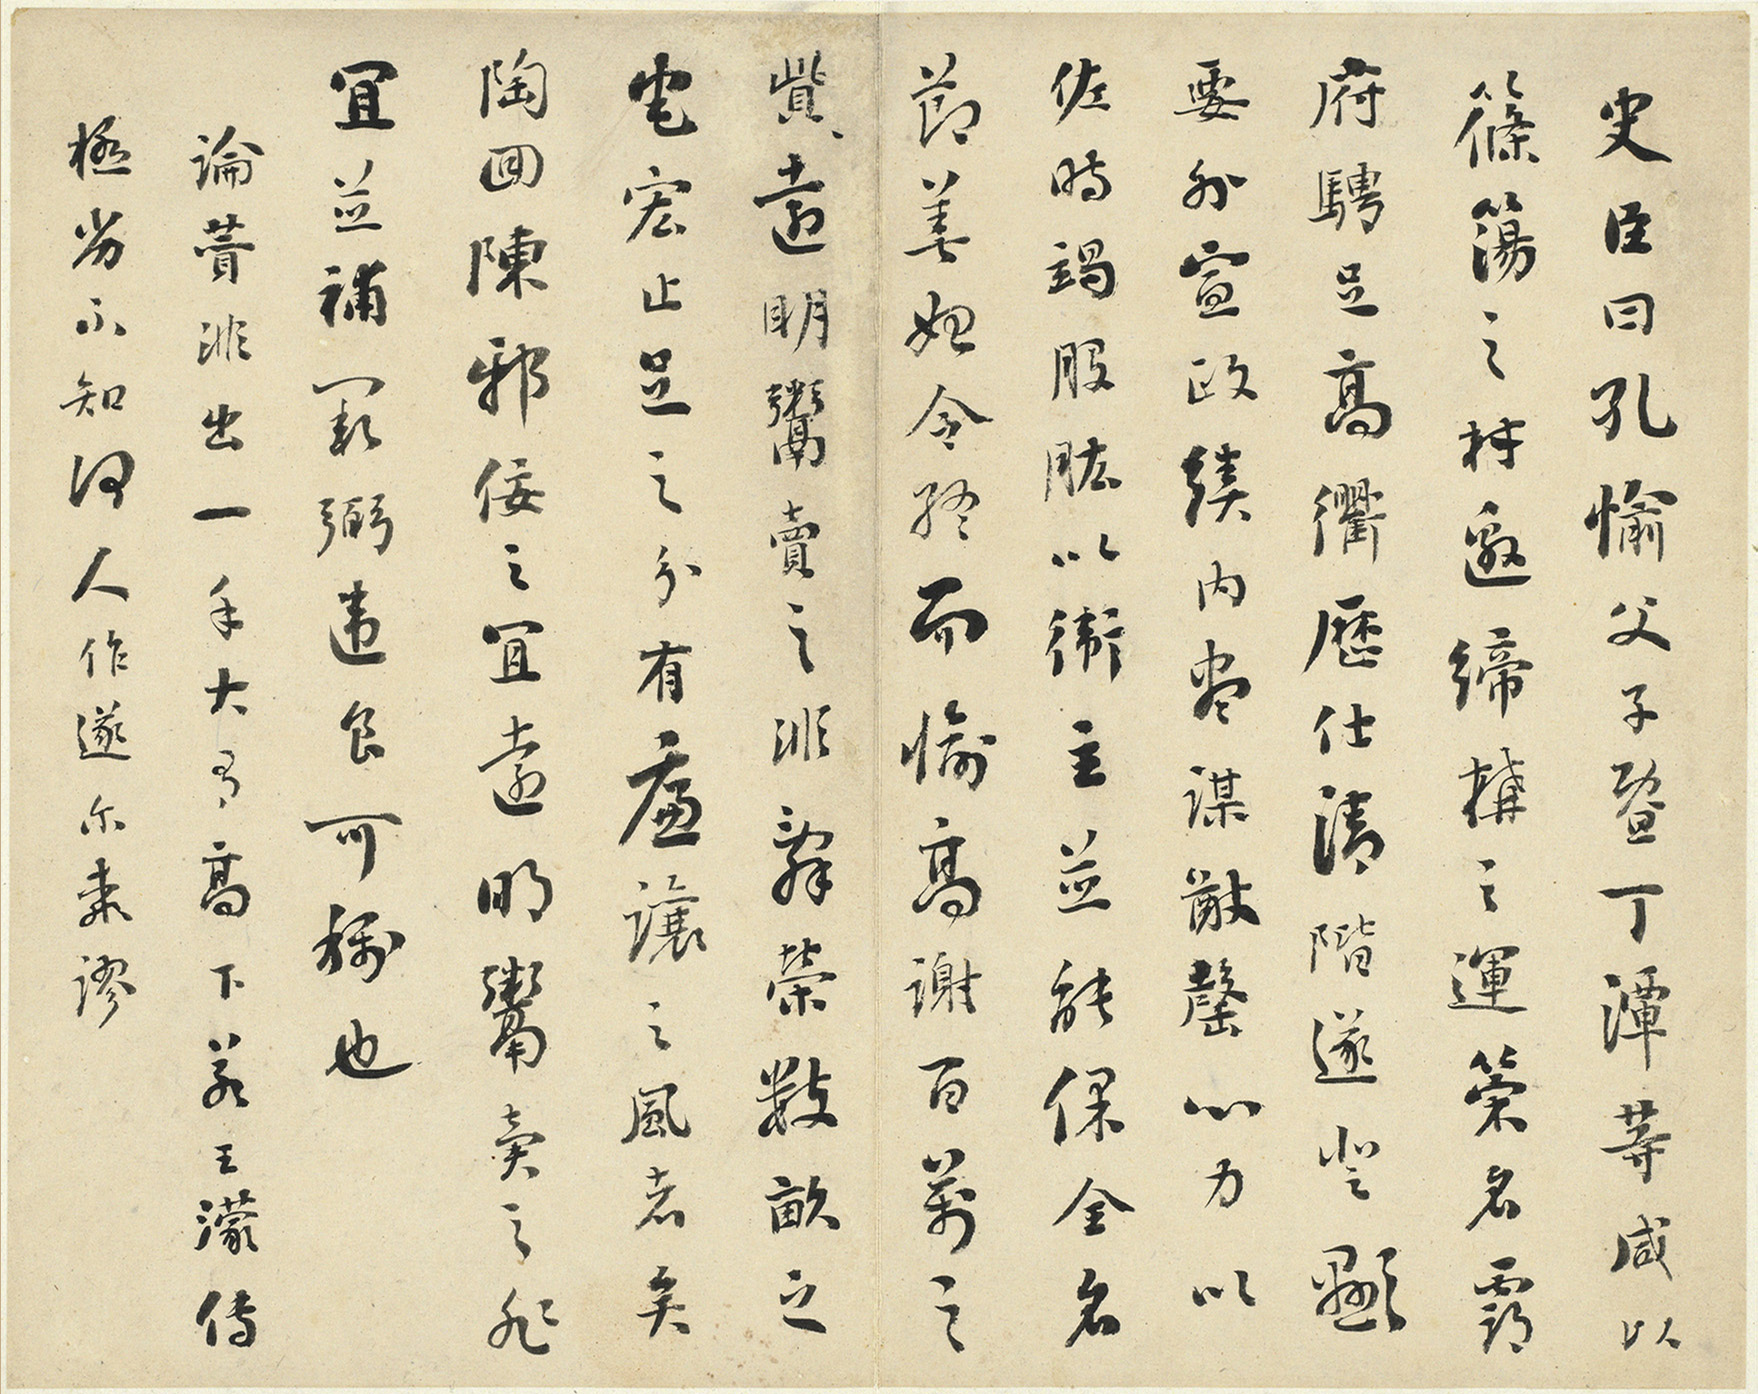 史臣曰孔愉父子暨丁潭等咸以
篠簜之材邀締構之運策名霸
府騁足高衢歷仕清階遂登顯
要外宣政績內盡謀猷罄心力以
佐時竭股肱以衛主並能保全名
節善始令終而愉高謝百萬之
貲遠明鬻賣之非辭榮數畝之
宅宏止足之分有廉讓之風者矣
陶回陳邪佞之宜遠明鬻賣之非
宜並補闕弼違良可稱也
論贊非出一手大有高下若王濛傳
極劣不知何人作遂尔乖謬